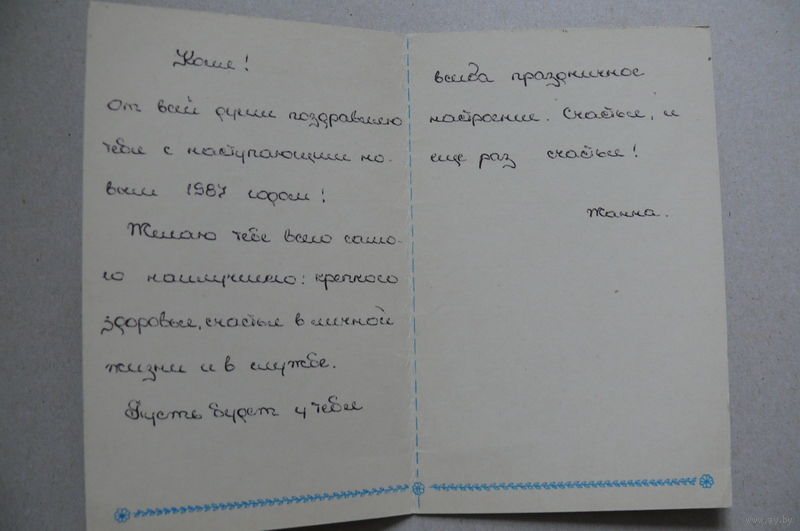 Коше!
От всей души поздравляю
тебя с наступающим но-
вым 1987 годом!
Желаю тебе всего само-
го наилучшего: крепкого
здоровья, счастья в личной
жизни и в службе.
Пусть будет у тебя
всегда праздничное
настроение. Счастья, и
еще раз счастья!
Жанна.
www.ay.by